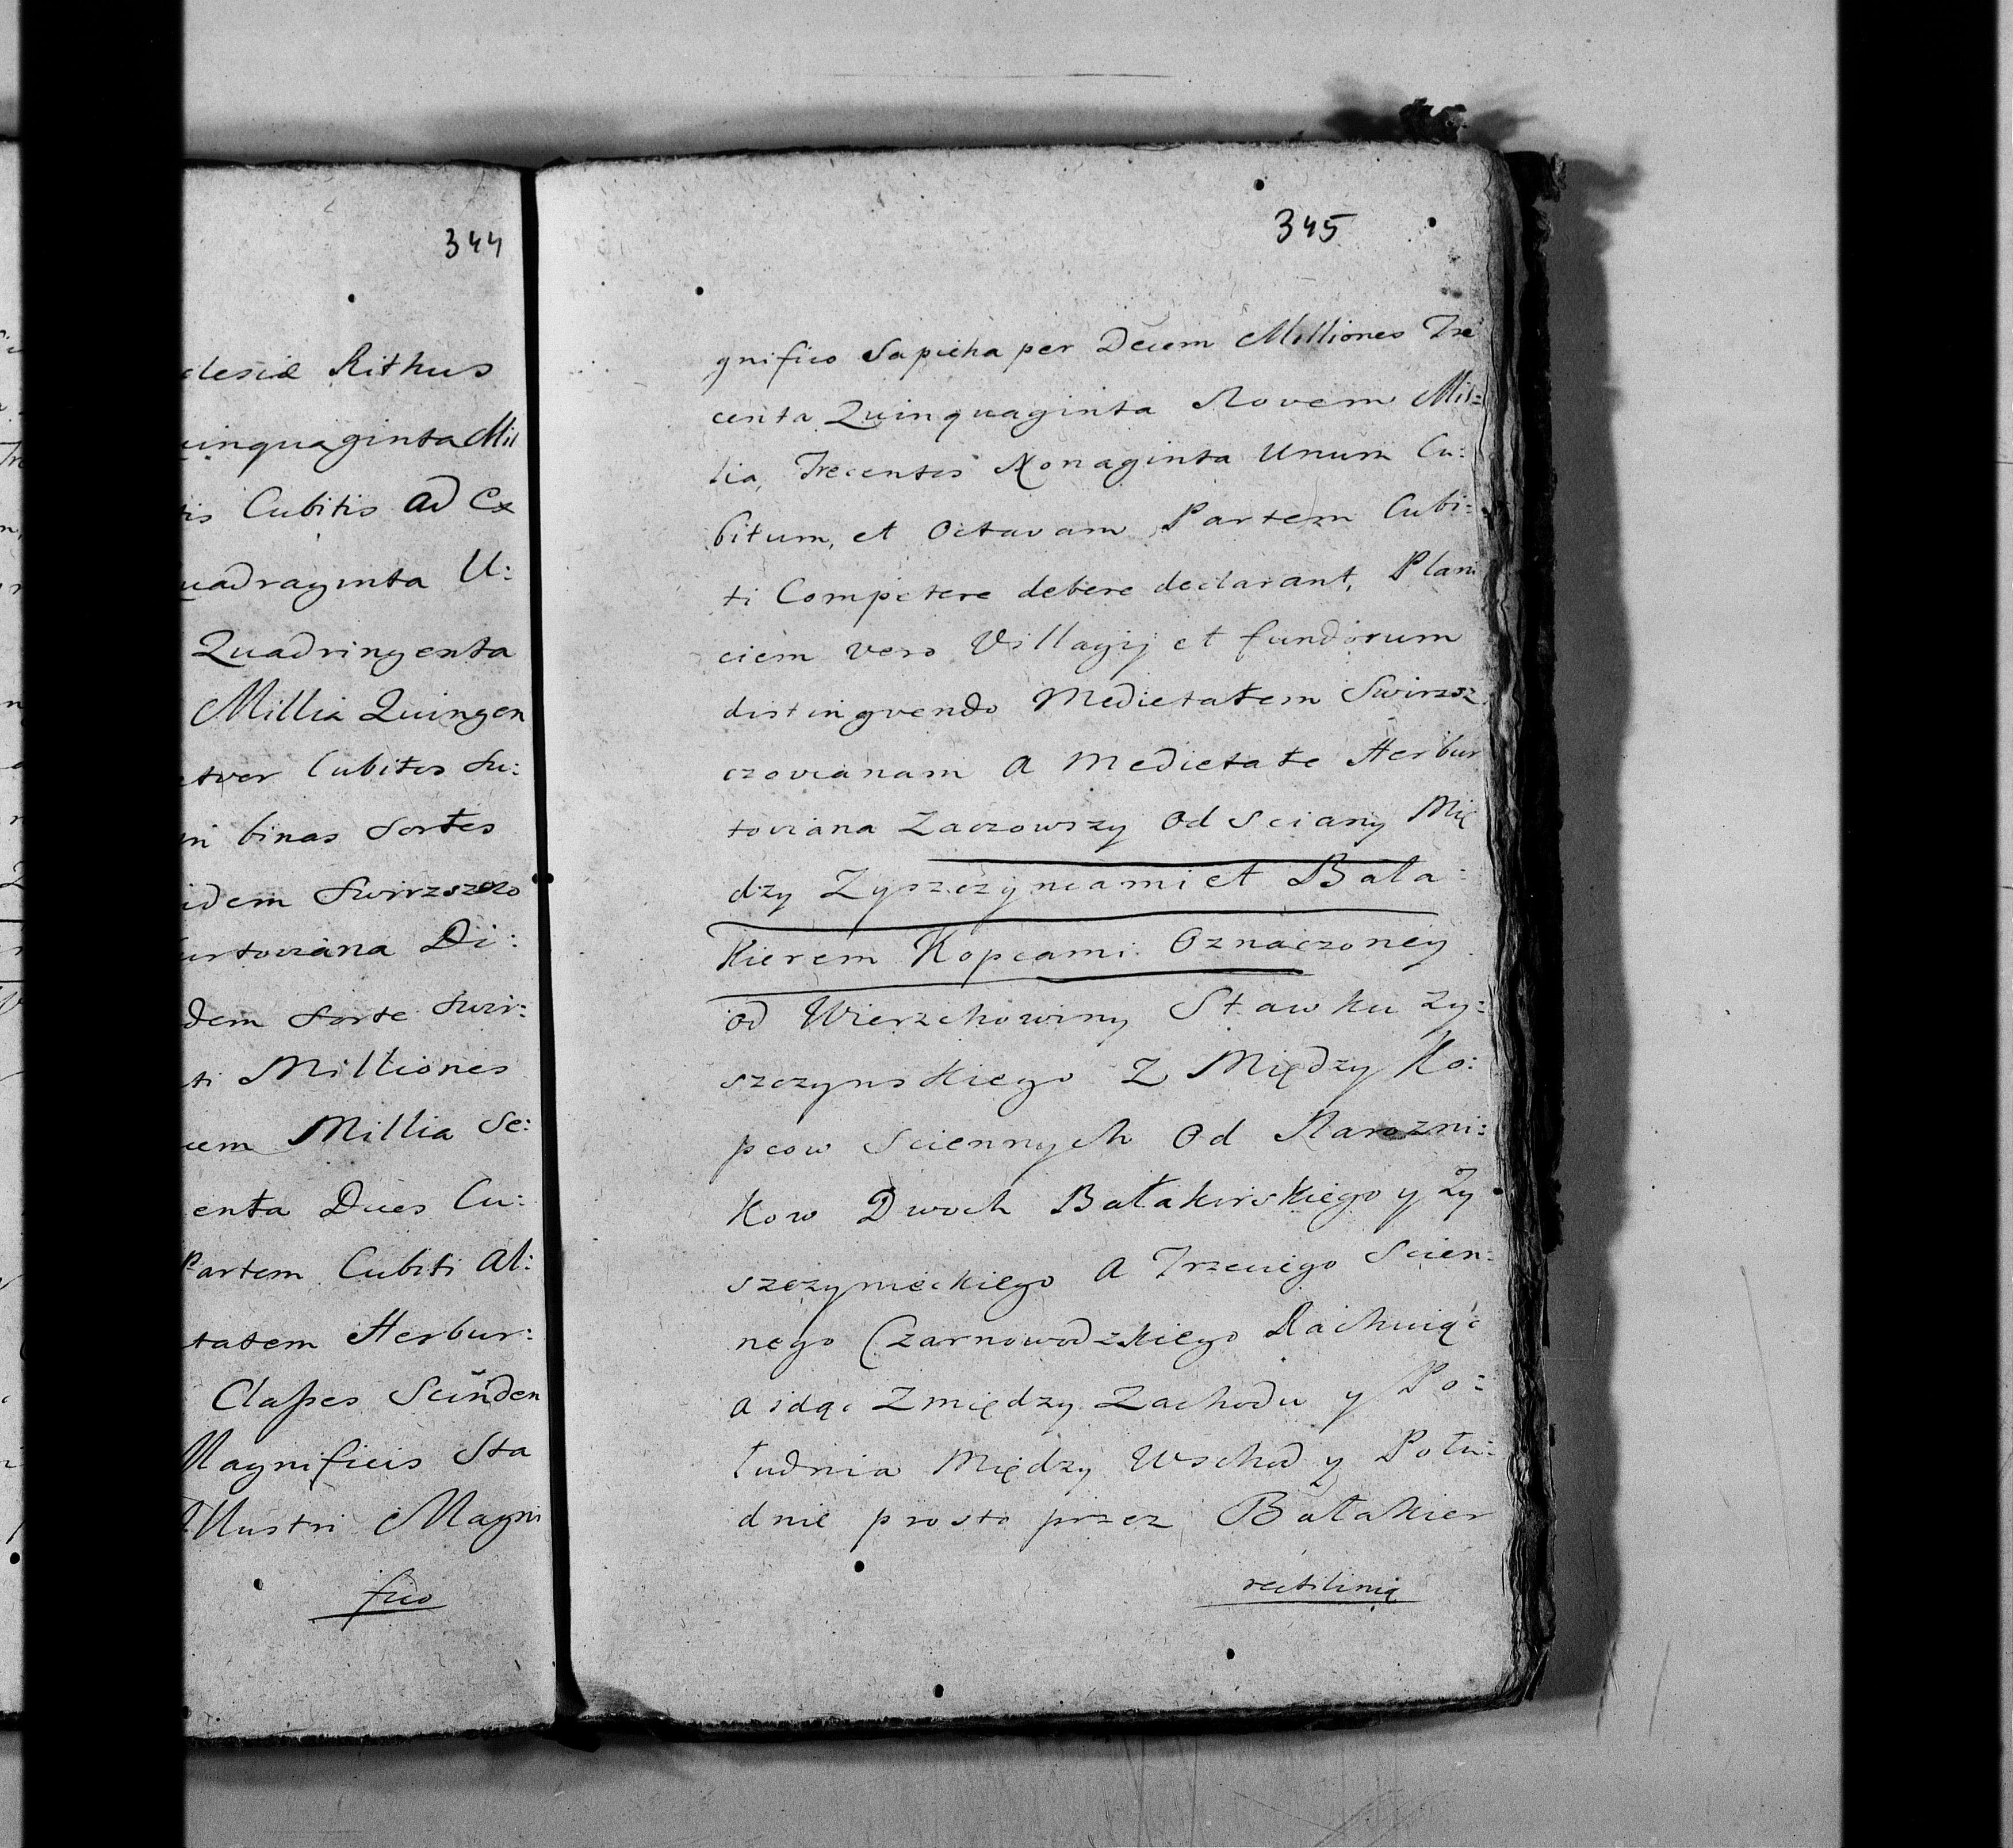 344
desiæ Rithus
uinquaginta Mil
tis Cubitis ad Ex
uadraginta U:
Quadringenta
Millia Quingen
etver Cubitos Su:
in binas Sortes
idem Swirzszczo
urtoviana Di:
dem Sorte Swir:
ti Milliones
cem Millia Se:
enta Dues Cu:
Partem Cubiti al:
tatem Herbur:
Classes Scinden
Magnificis Sta
Illustri Magni
fico
345
gnifico Sapieha per Decem Milliones Tre
centa Quinquaginta Novem Mil=
lia, Trecentos Nonaginta Unum Cu:
bitum, et Octavam Partem Cubi:
ti Competere debere declarant, Plani
ciem vero Villagij et fundorum
distingvendo Medietatem Swirzsz
czovianam a Medietate Herbur
toviana Zaczowszy od Sciany Mię
dzy Zyszczyncami et Bała:
kierem Kopcami Oznaczoney
od Wierzchowiny Stawku Zy:
szczynskiego Z Między Ko:
pcow Sciennych Od Narozni:
kow Dwoch Bałakirskiego y Zy
szczynieckiego a Trzeciego Scien:
nego Czarnowodzkiego Rachuiąc
a idąc Zmiędzy Zachodu y Po:
łudnia Między Wschod y Połu:
dnie prosto przez Bałakier
rectilinią